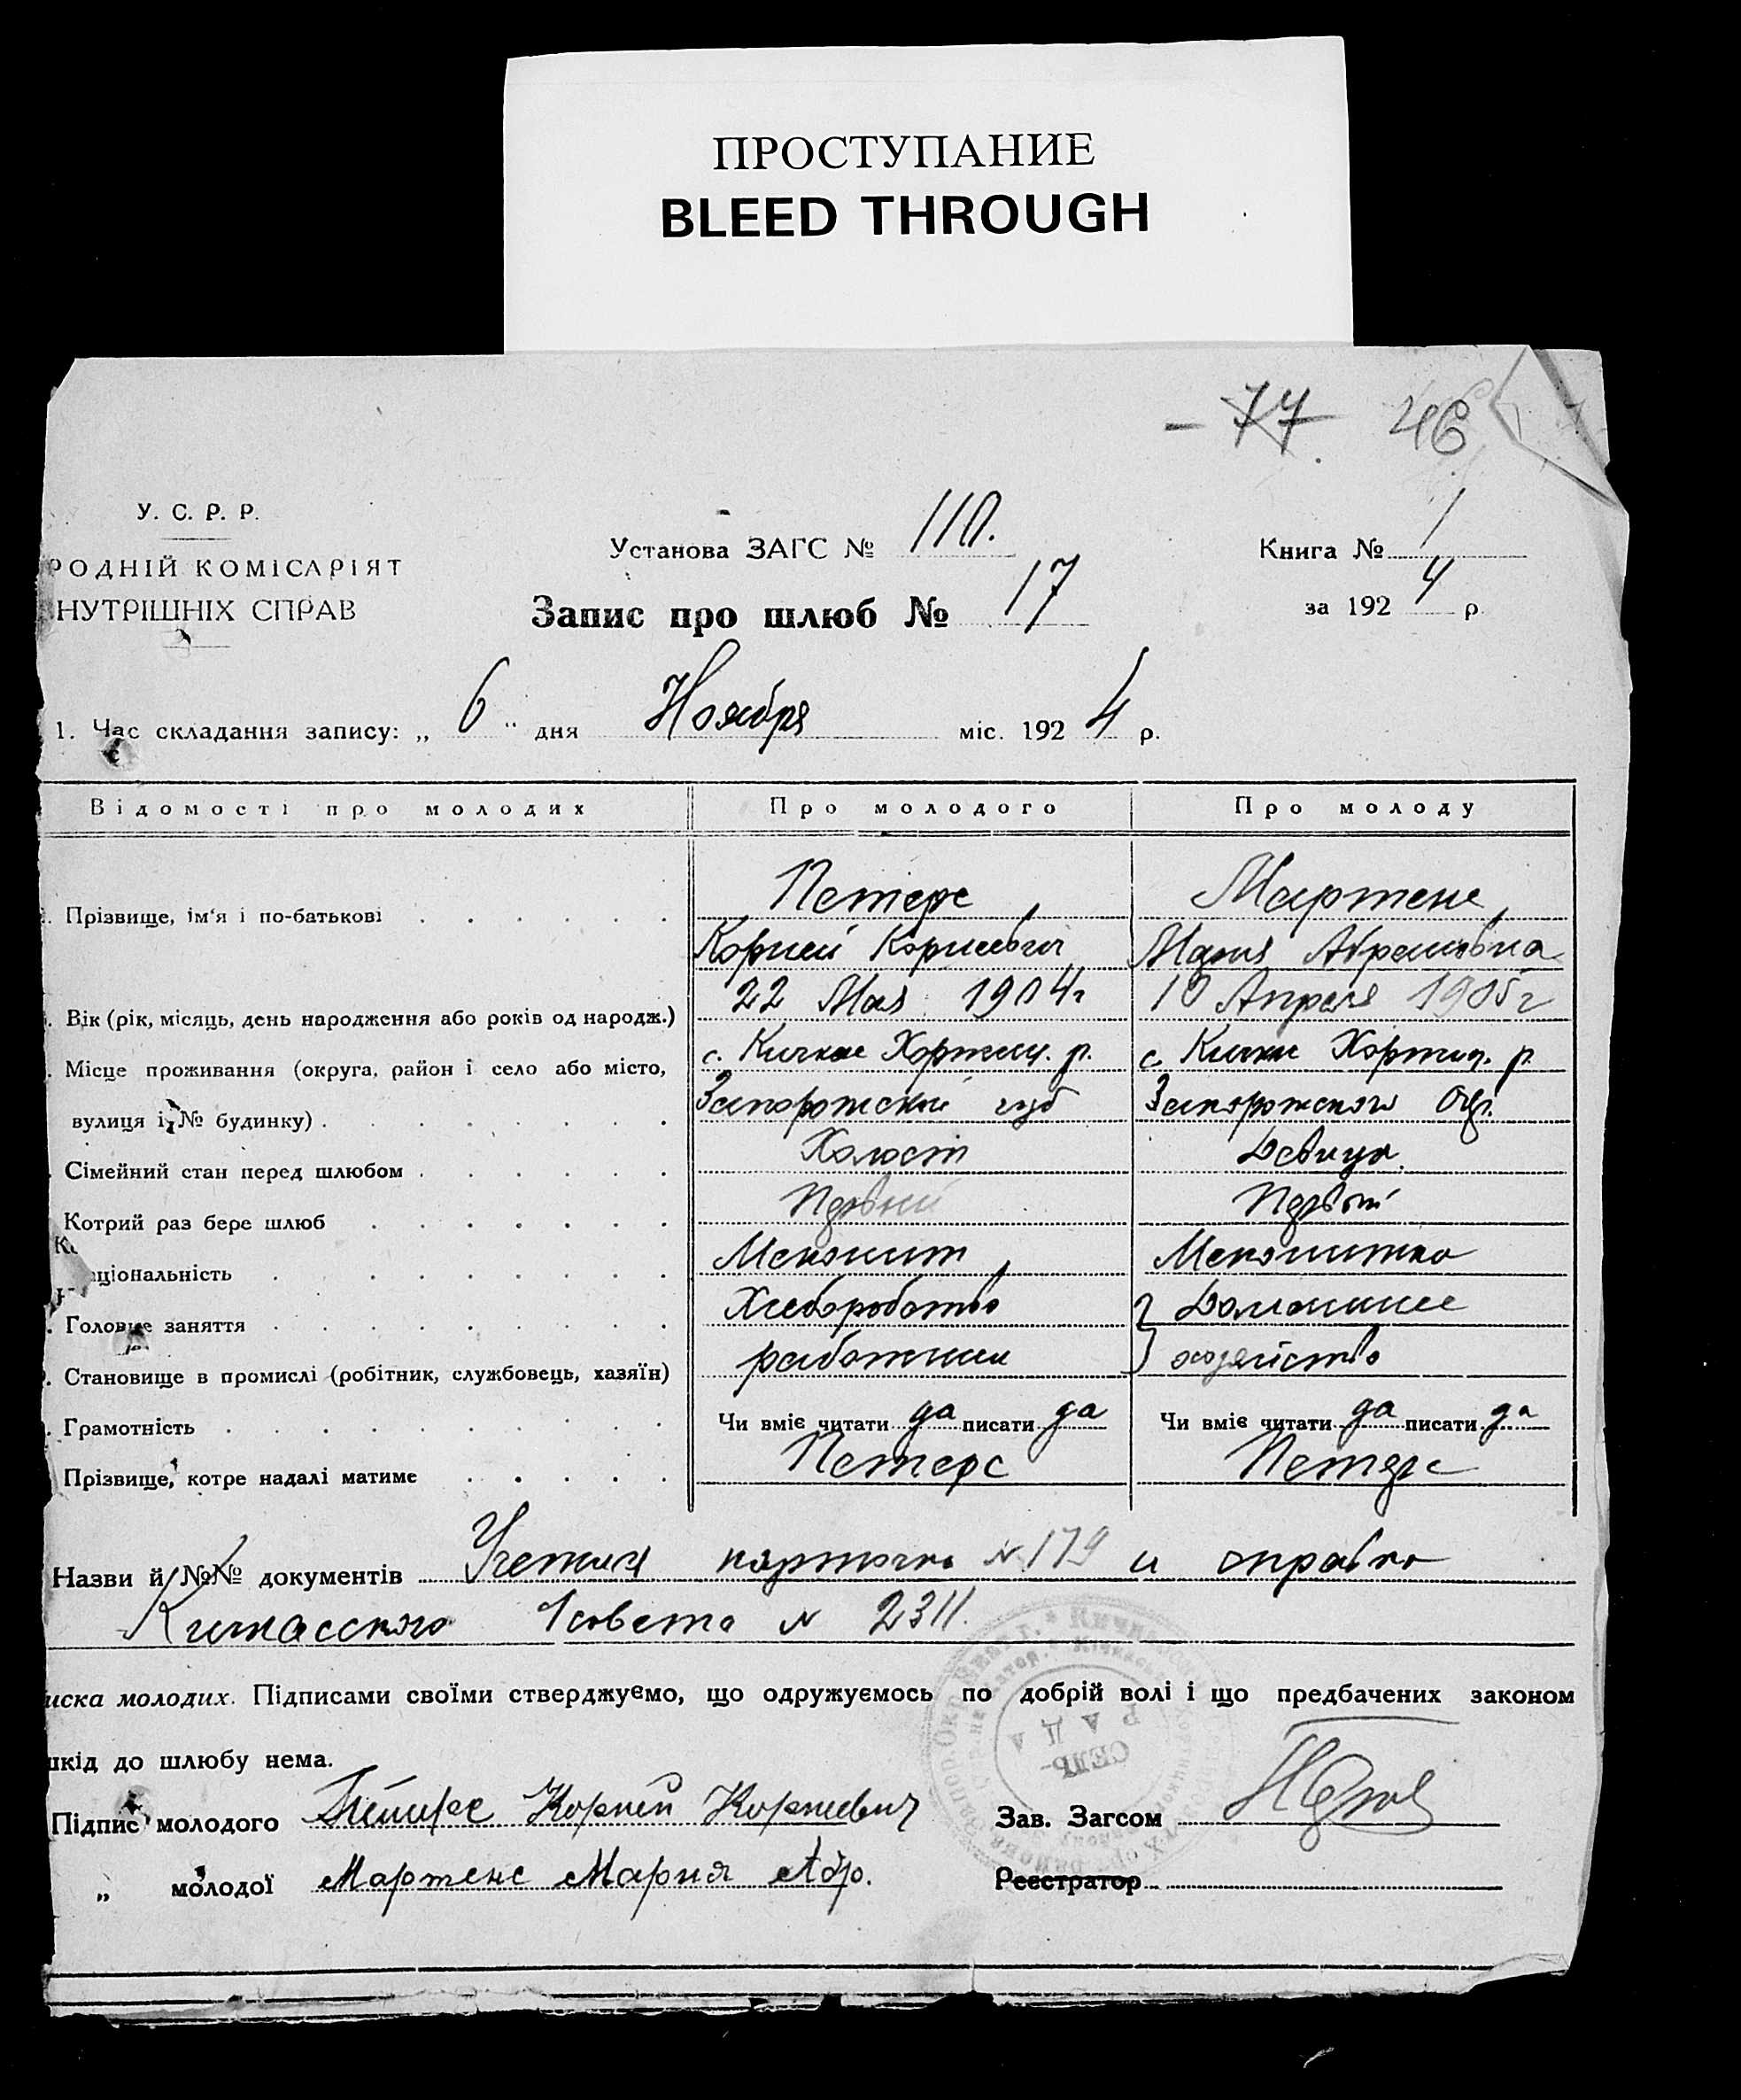 ПРОСТУПАНИЕ
BLEED THROUGH
77. 46
У. С. Р. Р.
РОДНІЙ КОМІСАРІЯТ
НУТРІШНІХ СПРАВ
Установа ЗАГС № 110.
Книга № 1
за 192 4 р.
Запис про шлюб № 17
1. Час складання запису: „ 6 " дня Ноября міс. 192 4 р.
Відомості про молодих Про молодого Про молоду
Прізвище, ім'я і по-батькові Петерс, Мартенс,
Корней Корнеевич Мария Абрамовна
Вік (рік, місяць, день народження або років од народж.) 22 Мая 1904 г 10 Апреля 1905 г
Місце проживання (округа, район і село або місто, с. Кичкас Хортиц. р. с. Кичкас Хортиц. р.
вулиця і № будинку) Запорожской губ Запорожского Окр.
Сімейний стан перед шлюбом Холост Девица.
Котрий раз бере шлюб Первый Первый
аціональність Менонит, Менонитка
Головне заняття Хлеборобство Домашнее
Становище в промислі (робітник, службовець, хазяїн) работник хозяйство
Грамотність Чи вміє читати да писати да Чи вміє читати да писати да
Прізвище, котре надалі матиме Петерс Петерс
Назви й №№ документів Учетная карточка № 179 и справка
Кичкасского с/совета № 2311.
иска молодих. Підписами своїми стверджуємо, що одружуємось по добрій волі і що предбачених законом
шкід до шлюбу нема.
Підпис молодого Петерс Корней Корневич Зав. Загсом
„ молодої Мартенс Мария Абр. Реєстратор
СЕЛЬ-
РАДА